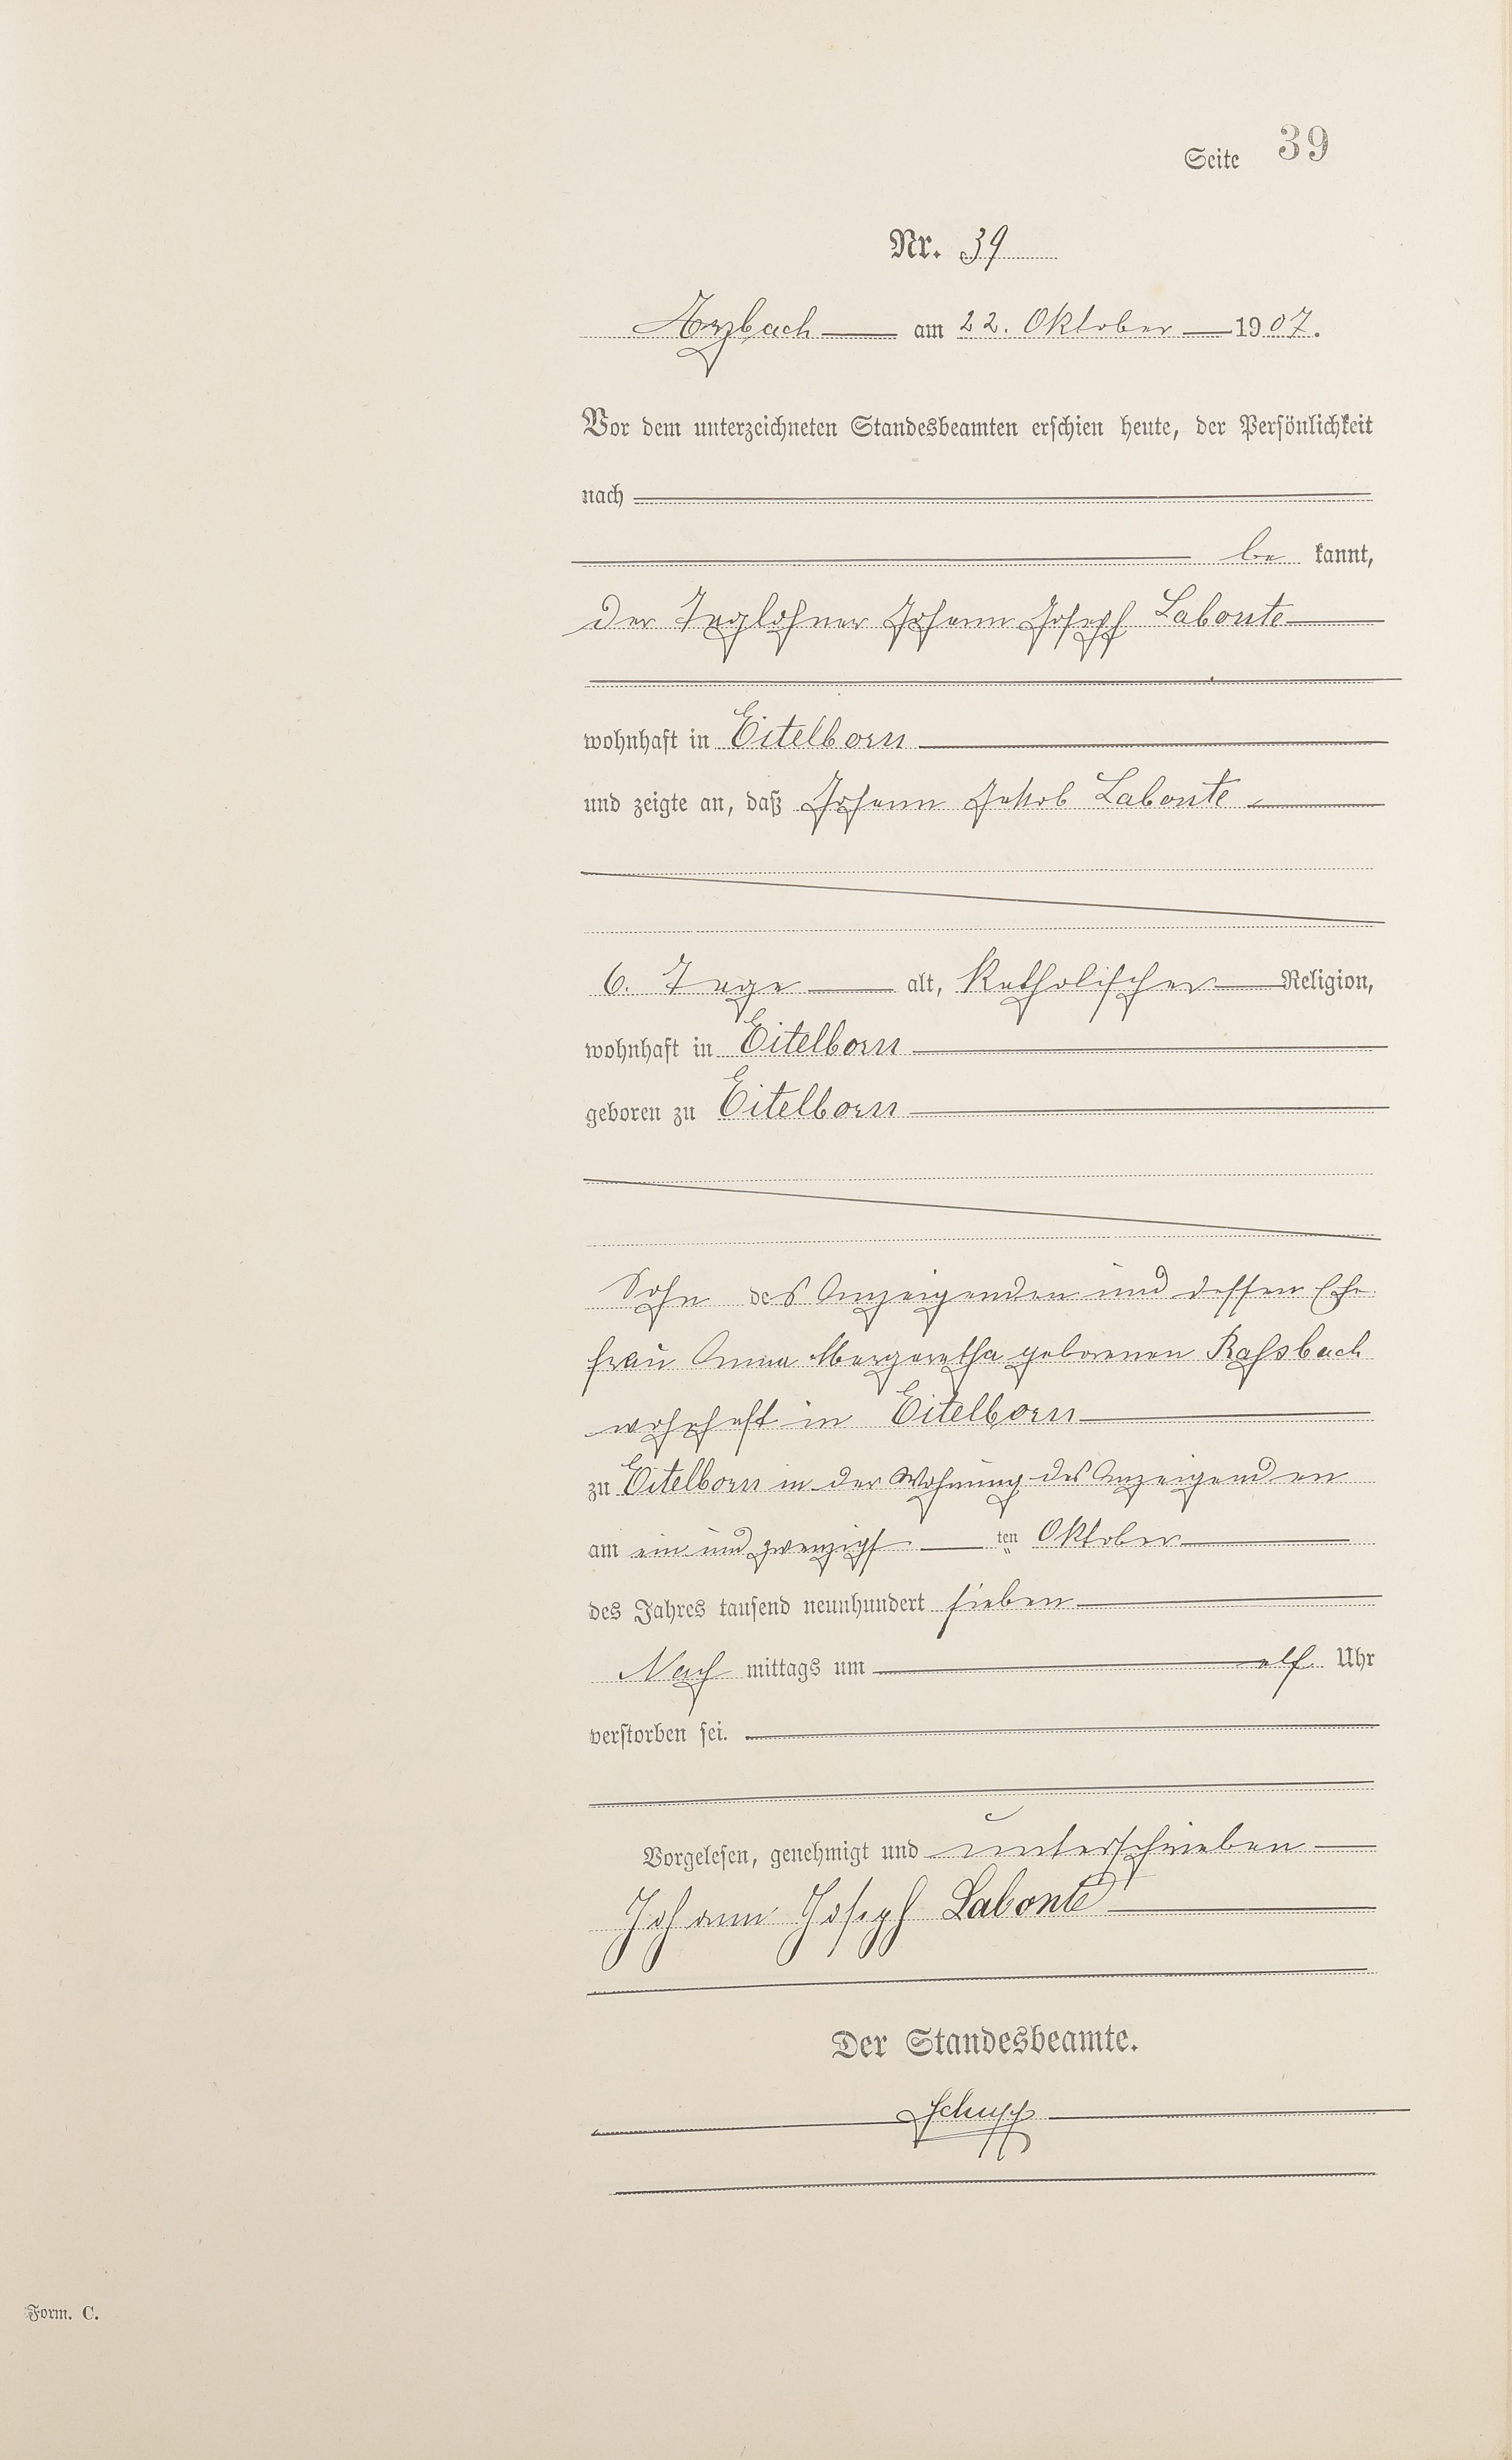 Seite 39
Nr. 39
Arzbach am 22. Oktober 1907.
Vor dem unterzeichneten Standesbeamten erschien heute, der Persönlichkeit
nach
be kannt,
der Taglöhner Johann Joseph Labonte
wohnhaft in Eitelborn
und zeigte an, daß Johann Jakob Labonte
6. Tage alt, Katholischer Religion,
wohnhaft in Eitelborn
geboren zu Eitelborn
Sohn des Anzeigenden und dessen Ehe
frau Anna Margaretha geborenen Rassbach
wohnhaft in Eitelborn
zu Eitelborn in der Wohnung des Anzeigenden
am ein und zwanzigs ten Oktober
des Jahres tausend neunhundert sieben
Nach mittags um elf Uhr
verstorben sei.
Vorgelesen, genehmigt und unterschrieben
Johann Joseph Labonte
Der Standesbeamte.
Schupp
Form. C.